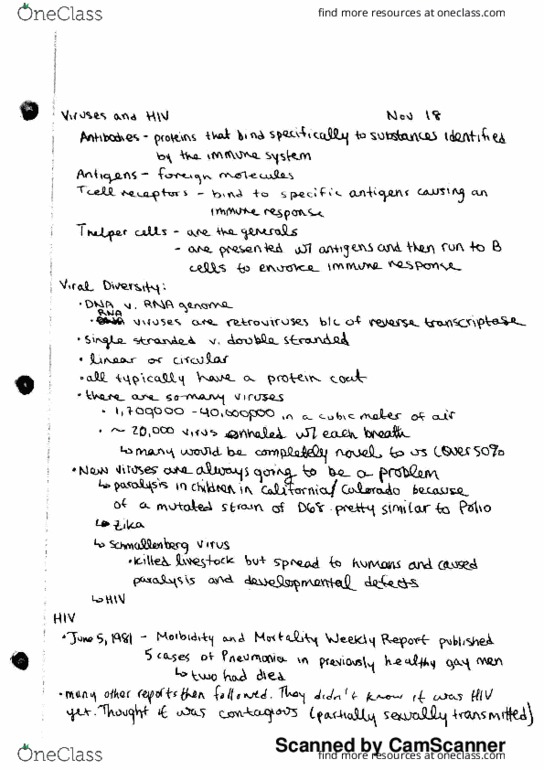 OneClass
find more resources at oneclass.com
Viruses and HIV Nov 18
Antibodies - proteins that bind specifically to substances identified
by the immune system
Antigens - foreign molecules
Tcell receptors - bind to specific antigens causing an
immune response
Thelper cells - are the generals
- are presented w/ antigens and then run to B
cells to envoke immune response
Viral Diversity:
• DNA v. RNA genome
• RNA viruses are retroviruses b/c of reverse transcriptase
• single stranded v. double stranded
• linear or circular
• all typically have a protein coat
• there are so many viruses
• 1,700,000 - 40,000,000 in a cubic meter of air
• ~ 20,000 virus enhaled w/ each breath
↳ many would be completely novel to us (over 50%
• New viruses are always going to be a problem
↳ paralysis in children in California/Colorado because
of a mutated strain of D68 pretty similar to Polio
↳ Zika
↳ Schmallenberg virus
• killed livestock but spread to humans and caused
paralysis and developmental defects
↳ HIV
HIV
• June 5, 1981 - Morbidity and Mortality Weekly Report published
5 cases of Pneumonia in previously healthy gay men
↳ two had died
• many other reports then followed. They didn't know it was HIV
yet. Thought it was contagious (partially sexually transmitted)
Scanned by CamScanner
OneClass
find more resources at oneclass.com